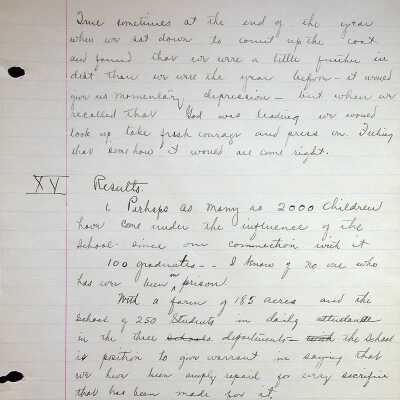 True sometimes at the end of the year
when we sat down to count up the cost
and found that we were a little further in
debt than we were the year before - it would
give us momentary depression - but when we
recalled that God was leading we would
look up take fresh courage and press on. Feeling
that some how it would all come right.
XV Results.
1. Perhaps as many as 2000 Children
have come under the influence of the
School since our connection with it
100 graduates - - I know of no one who
has ever been in prison.
With a farm of 185 acres and the
School of 250 Students in daily attendance
in the three schools departments - with the School
is position to give warrant in saying that
we have been amply repaid for every sacrifice
that has been made for it.